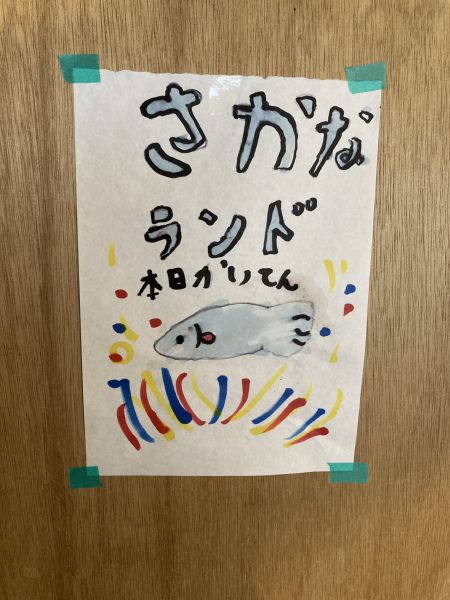 さかな
ランド
本日かいてん